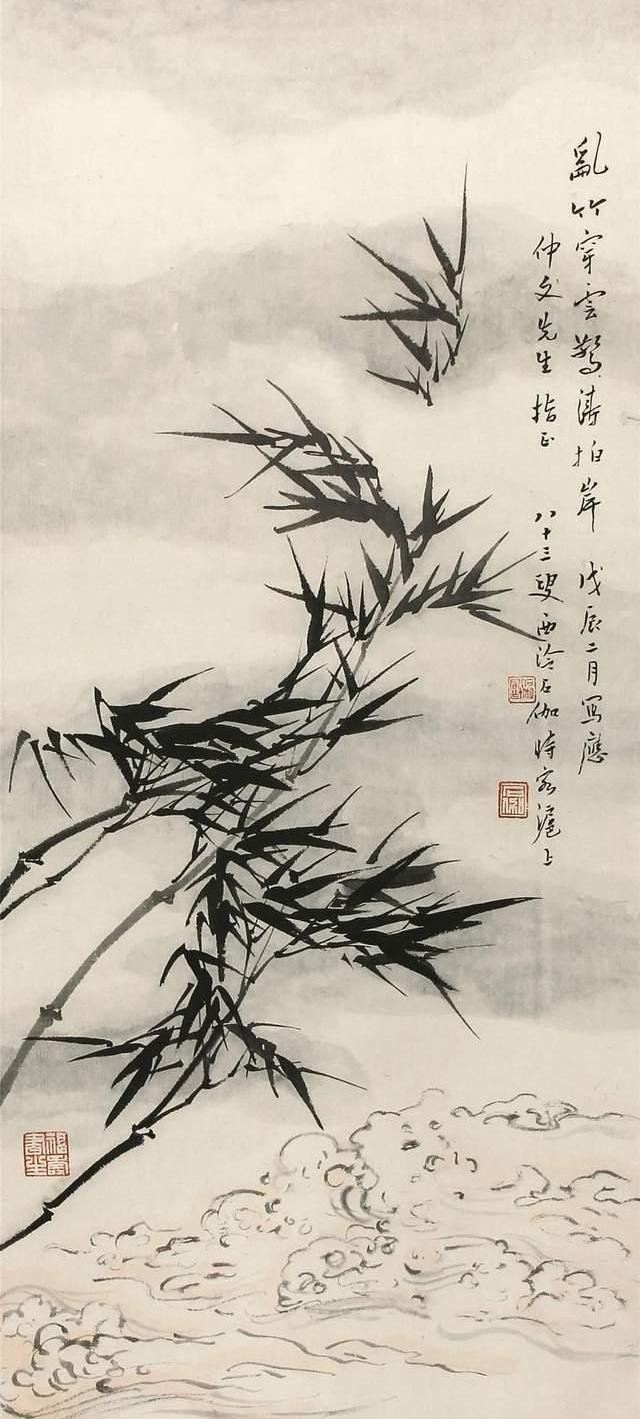 亂竹穿雲驚濤拍岸 戊辰二月寫應
仲文先生指正 八十三叟西泠石伽時客滬上